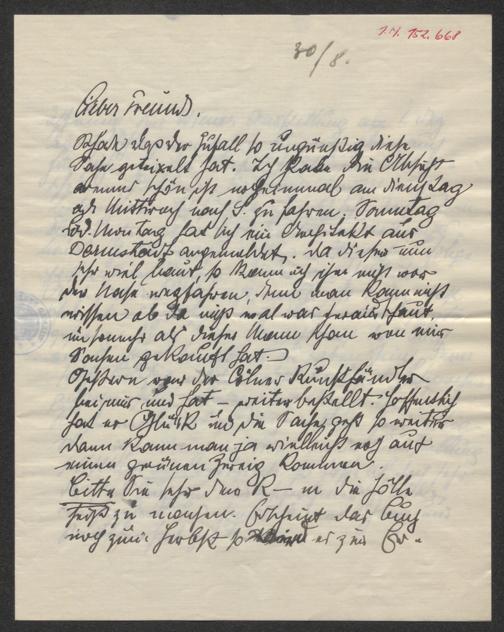 I.N. 152.668
30/8.
Lieber Freund.
Schade dass der Zufall so ungünstig diese
Sache gedeixelt hat. Ich habe die Absicht
wenns schön ist noch einmal am Dienstag
oder Mittwoch nach S. zu fahren, Sonntag
od. Montag hat sich ein Architekt aus
Darmstadt angemeldet. Da dieser nun
sehr viel baut, so kann ich ihm nicht vor
der Nase wegfahren, denn man kann nicht
wissen ob da nicht mal was heraus schaut,
umsomehr als dieser Mann schon von mir
Sachen gekauft hat.
Gestern war der Cölner Kunsthändler
bei mir und hat – weiter bestellt. Hoffentlich
hat er Glück und die Sache geht so weiter
dann kann man ja vielleicht noch auf
einen grünen Zweig kommen.
Bitte Sie sehr dem K – n die Hölle
heiß zu machen. Erscheint das Buch
noch zum Herbst so wird er zur Er-